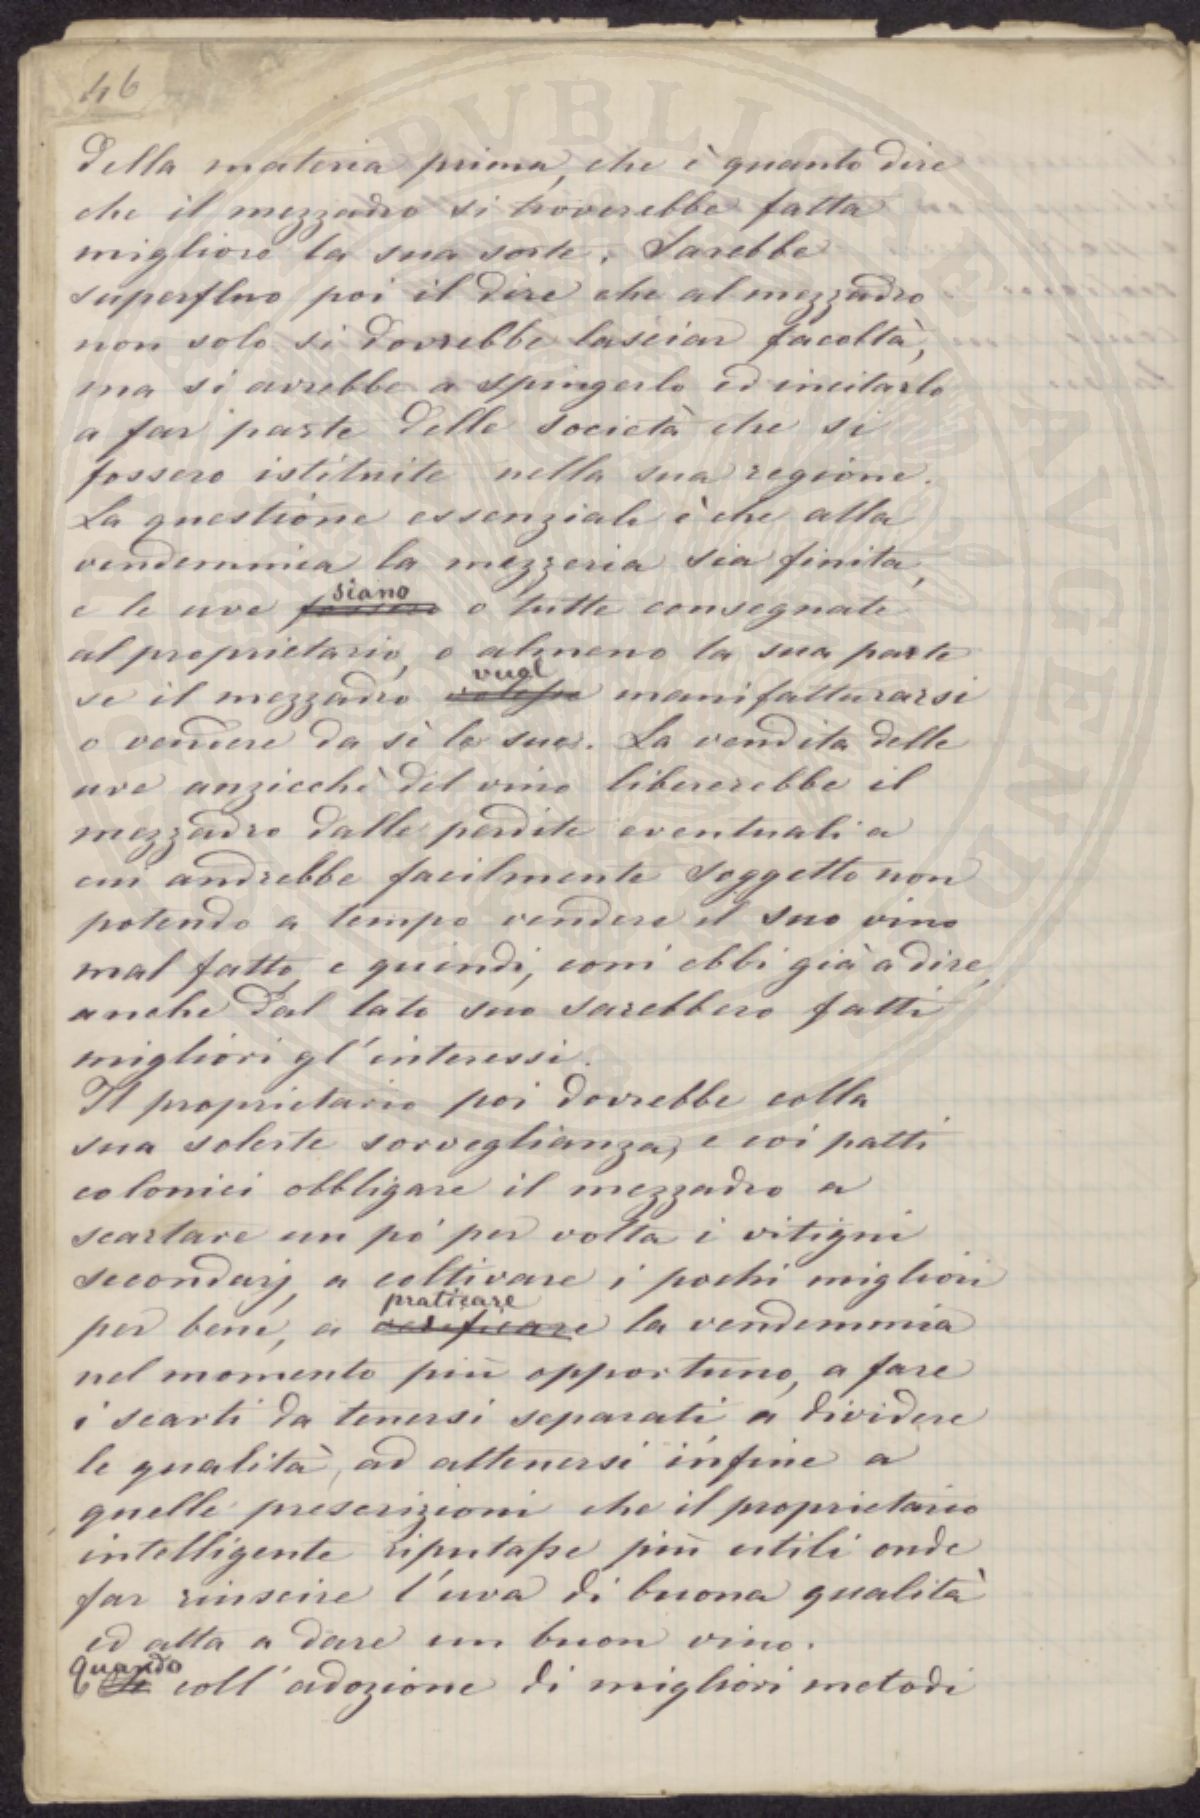 46
della materia prima, che è quanto dire
che il mezzadro si troverebbe fatta
migliore la sua sorte. Sarebbe
superfluo poi il dire che al mezzadro
non solo si dovrebbe lasciar facoltà,
ma si avrebbe a spingerlo ed incitarlo
a far parte delle società che si
fossero istituite nella sua regione.
La questione essenziale è che alla
vendemmia la mezzeria sia finita,
siano
e le uve fossero o tutte consegnate
al proprietario, o almeno la sua parte
vuol
se il mezzadro volesse manifatturarsi
o vendere da sè la sua. La vendita delle
uve anzicchè del vino libererebbe il
mezzadro dalle perdite eventuali a
cui andrebbe facilmente soggetto non
potendo a tempo vendere il suo vino
mal fatto, e quindi, com' ebbi già a dire,
anche dal lato suo sarebbero fatti
migliori gl'interessi.
Il proprietario poi dovrebbe colla
sua solerte sorveglianza, e coi patti
colonici obbligare il mezzadro a
scartare un pò per volta i vitigni
secondarj, a coltivare i pochi migliori
praticare
per bene, a la vendemmia
nel momento più opportuno, a fare
i scarti da tenersi separati a dividere
le qualità, ad attenersi infine a
quelle prescrizioni che il proprietario
intelligente riputasse più utili onde
far riuscire l'uva di buona qualità
ed atta a dare un buon vino.
Quando
Se coll'adozione di migliori metodi
PVBLICAE AVGENDAE